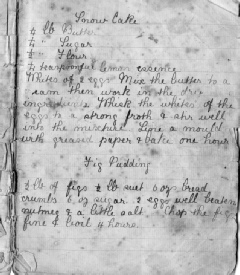 Snow Cake
¼ lb Butter
¼ " Sugar
½ " Flour
½ teaspoonful lemon essence
Whites of 2 eggs Mix the butter to a
cream then work in the dry
ingredients. Whisk the whites of the
eggs to a strong froth & stir well
into the mixture. Line a mould
with greased paper & bake one hour
Fig Pudding
½ lb of figs ¼ lb suet 6 oz bread
crumbs 6 oz sugar 2 eggs well beaten
nutmeg & a little salt Chop the figs
fine & boil 4 hours